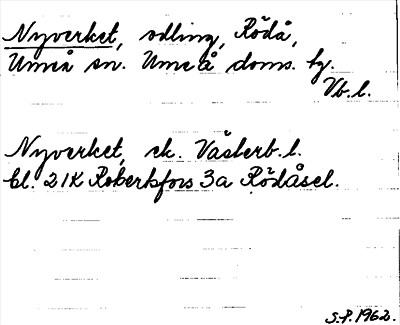 Nyverket, odling, Rödå,
Umeå sn. Umeå doms. tg.
Vb.l.
Nyverket, ek. Västerb. l.
bl. 21K Robertsfors 3a Rödåsel.
S.P. 1962.